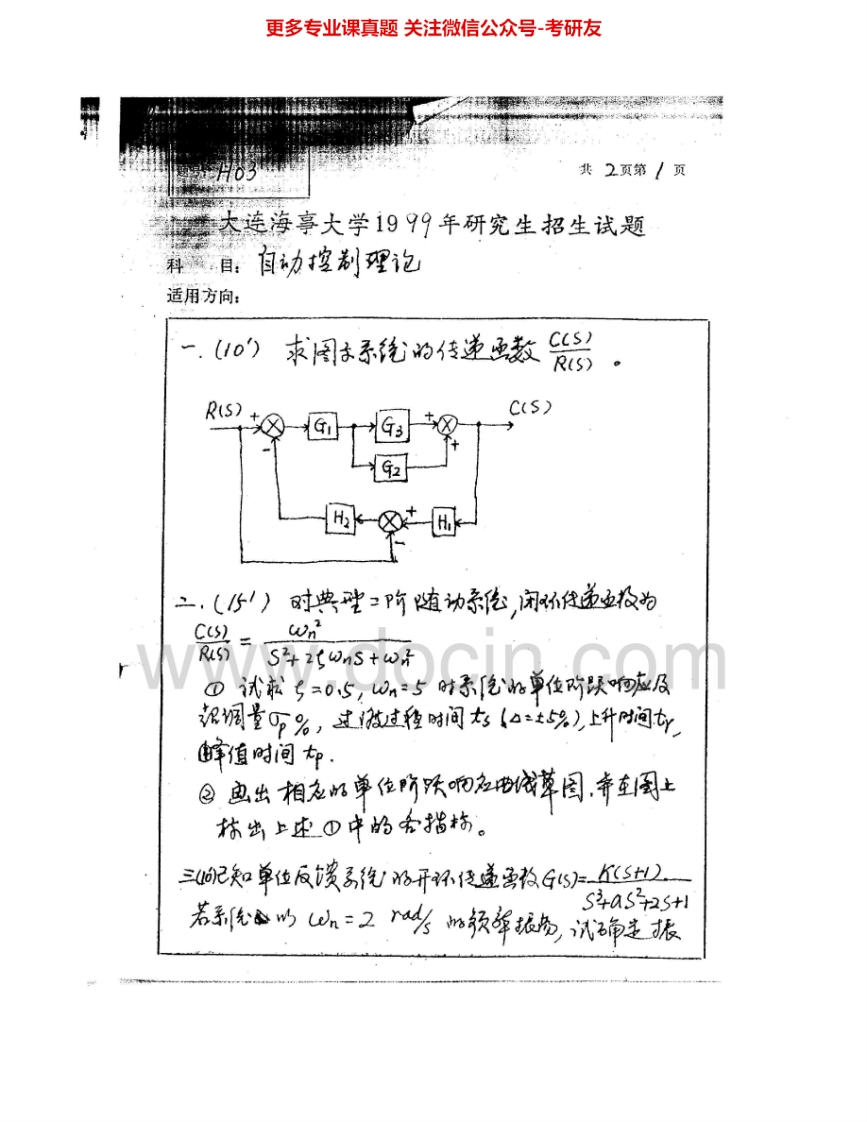 更多专业课真题 关注微信公众号-考研友
题号: H03
共 2页第 1 页
大连海事大学1999年研究生招生试题
科 目: 自动控制理论
适用方向:
一. (10') 求图示系统的传递函数 C(S)/R(S) 。
R(S) + G₁ G₃ + C(S)
- G₂ +
H₂ + H₁
-
二. (15') 对典型二阶随动系统,闭环传递函数为
C(S)/R(S) = ωn²/(S²+2ζωnS+ωn²)
www.docin.com
① 试求 ζ=0.5, ωn=5 时系统的单位阶跃响应及
超调量σp%, 过渡过程时间 ts (Δ=±5%), 上升时间tr,
峰值时间 tp.
② 画出相应的单位阶跃响应曲线草图,并在图上
标出上述①中的各指标。
三(10')已知单位反馈系统的开环传递函数G(S)= K(S+1)/(S³+aS²+2S+1)
若系统以 ωn=2 rad/s 的频率振荡, 试确定振